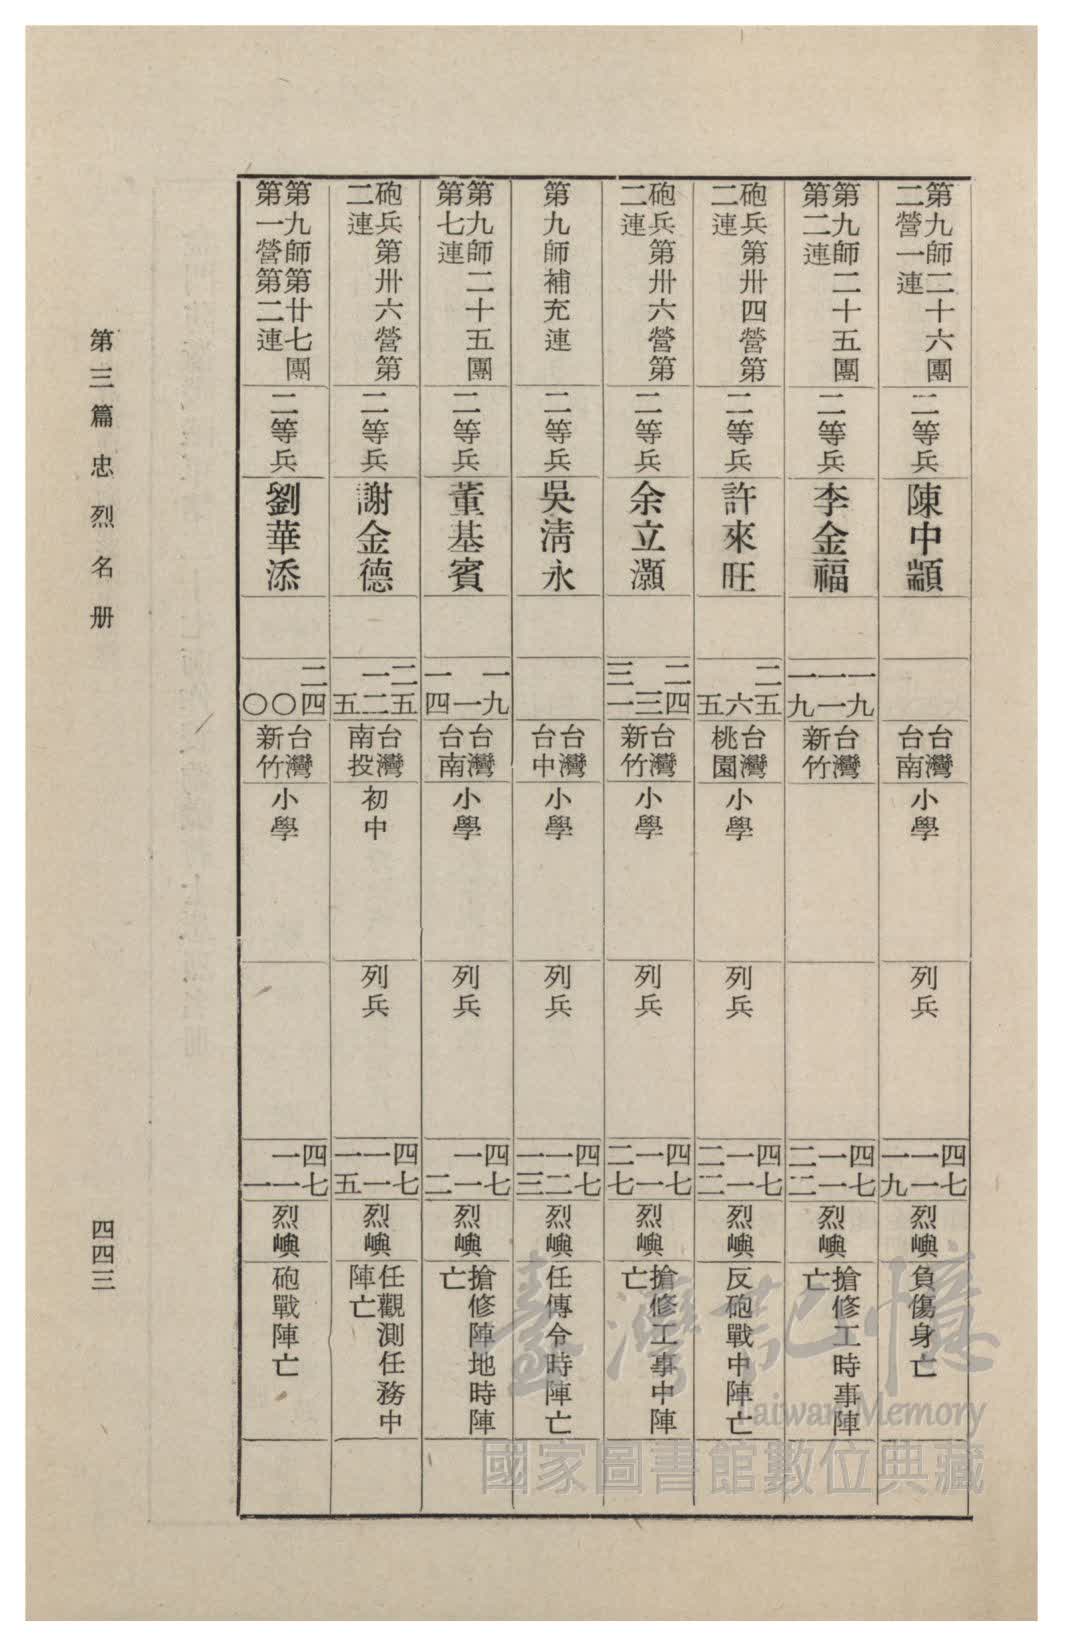 第九師二十六團
二營一連
二等兵
陳中顓
台灣
台南
小學
列兵
四七
一一
一九
烈嶼
負傷身亡
第九師二十五團
第二連
二等兵
李金福
一九
一一
一九
台灣
新竹
四七
一一
二二
烈嶼
搶修工時事陣
亡
砲兵第卅四營第
二連
二等兵
許來旺
二五
六
五
台灣
桃園
小學
列兵
四七
一一
二二
烈嶼
反砲戰中陣亡
砲兵第卅六營第
二連
二等兵
余立灝
二四
三
三一
台灣
新竹
小學
列兵
四七
一一
二七
烈嶼
搶修工事中陣
亡
第九師補充連
二等兵
吳清永
台灣
台中
小學
列兵
四七
一二
一三
烈嶼
任傳令時陣亡
第九師二十五團
第七連
二等兵
董基賓
一九
一
一四
台灣
台南
小學
列兵
四七
一一
二
烈嶼
搶修陣地時陣
亡
砲兵第卅六營第
二連
二等兵
謝金德
二五
一二
五
台灣
南投
初中
列兵
四七
一一
一五
烈嶼
任觀測任務中
陣亡
第九師第廿七團
第一營第二連
二等兵
劉華添
二四
〇
〇
台灣
新竹
小學
四七
一一
一
烈嶼
砲戰陣亡
第三篇 忠烈名册
四四三
臺灣記憶
Taiwan Memory
國家圖書館數位典藏